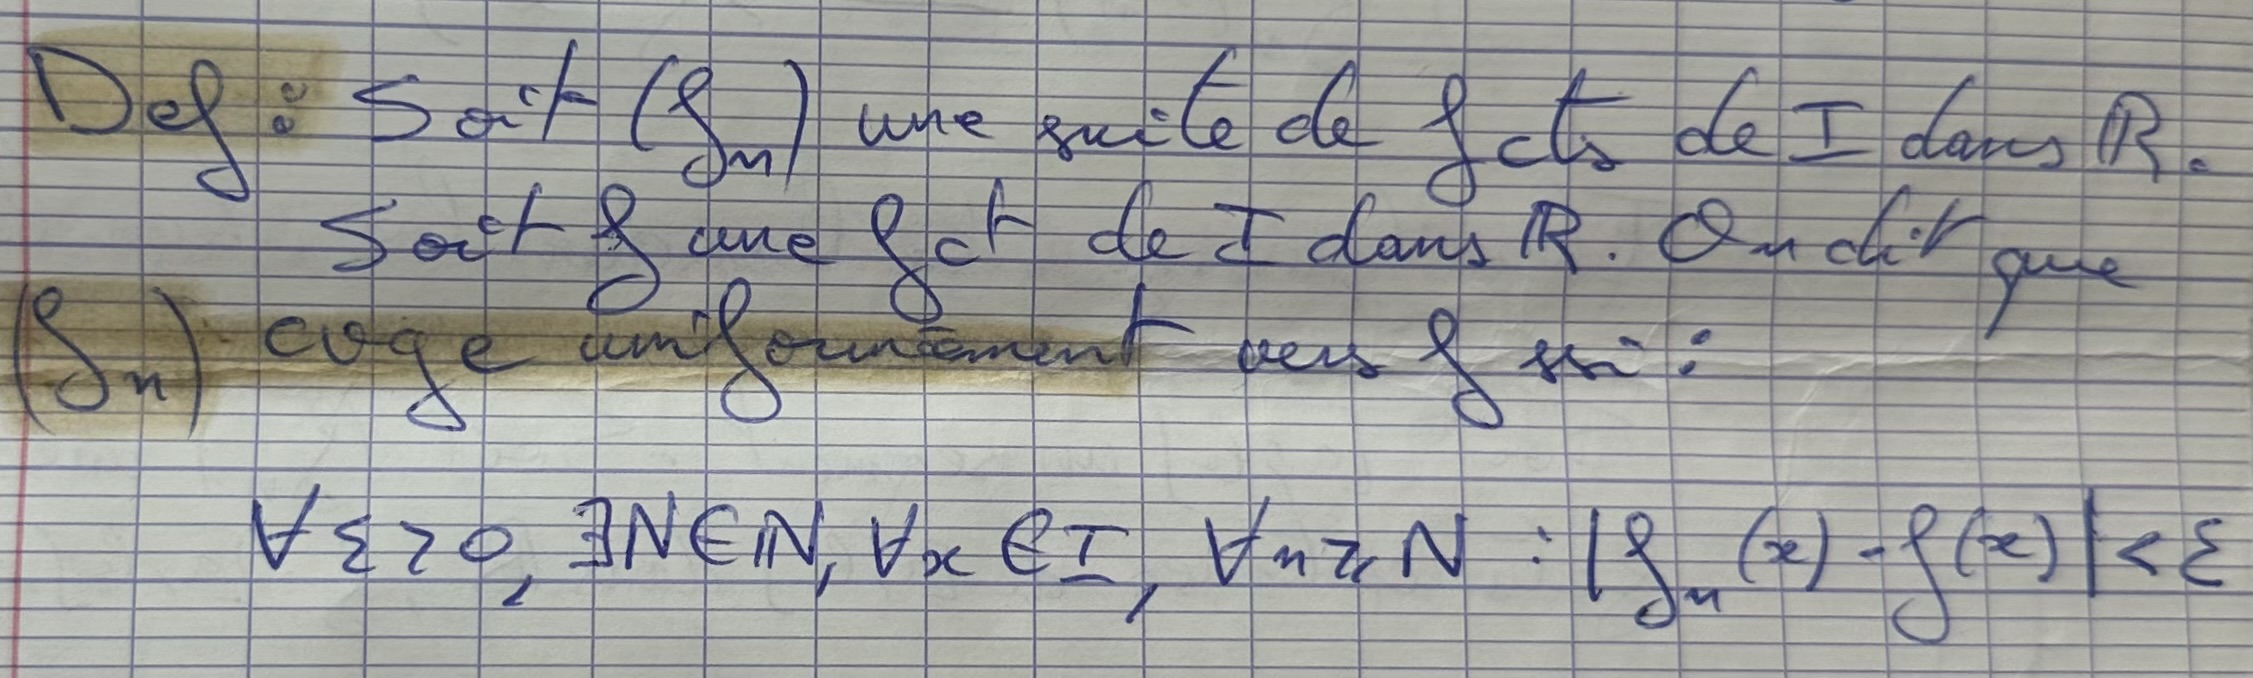 Def : Soit (fn) une suite de fcts de I dans ℝ.
Soit f une fct de I dans ℝ. On dit que
(fn) cvge uniformément vers f ssi :
∀ε>0, ∃N∈ℕ, ∀x∈I, ∀n≥N : |fn(x)-f(x)|<ε